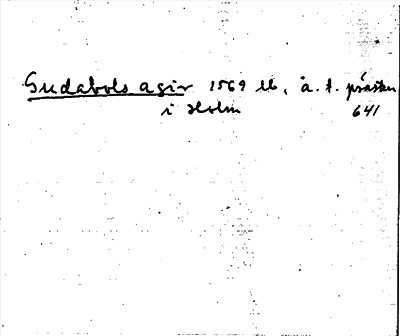 Gudabols agir 1569 Ub, å. t. prästen
i Holm 641